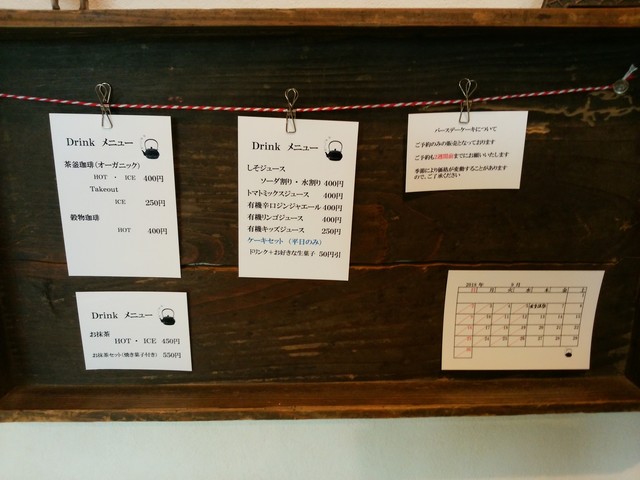 Drink メニュー
茶釜珈琲(オーガニック)
HOT ・ ICE 400円
Takeout
ICE 250円
穀物珈琲
HOT 400円
Drink メニュー
しそジュース
ソーダ割り・水割り 400円
トマトミックスジュース 400円
有機辛口ジンジャエール 400円
有機リンゴジュース 400円
有機キッズジュース 250円
ケーキセット (平日のみ)
ドリンク+お好きな生菓子 50円引
バースデーケーキについて
ご予約のみの販売となっております
ご予約も2週間前までにお願いいたします
季節により価格が変動することがあります
ので、ご了承ください
Drink メニュー
お抹茶
HOT ・ ICE 450円
お抹茶セット(焼き菓子付き) 550円
日 月 火 水 木 金 土